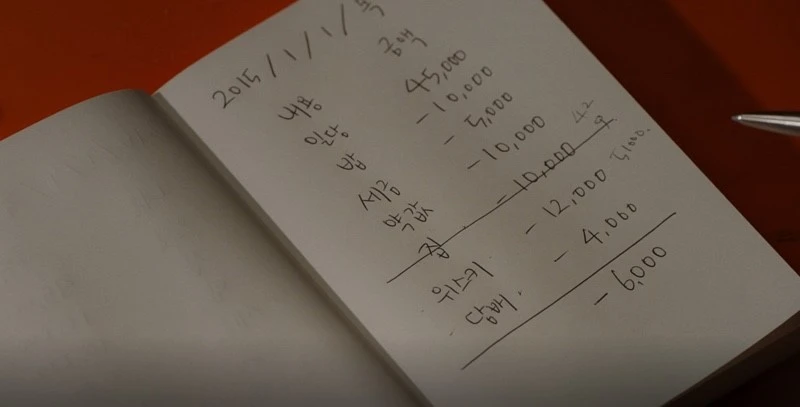 2015 / 1 / 1 / 목
내용 금액
일당 45,000
밥 - 10,000
세금 - 5,000
약값 - 10,000
집 - 10,000
위스키 - 12,000
담배 - 4,000
- 6,000